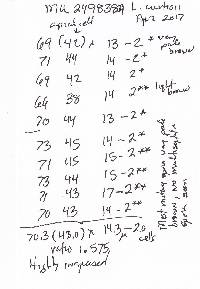 MIN 249838A L. curtisii
apical cell Apr 2017
69 (42) x 13-2 * very pale brown
71 44 14-2*
69 42 14 2*
66 38 14 2** light brown
70 44 13-2*
73 45 14-2*
71 45 15-2**
73 44 15-2**
71 43 17-2**
70 43 14-2**
70.3 (43.0) x 14.3-2.0
µ cells
ratio 1.575,
Highly increased
Most mature asci very pale
brown, no multiseptate